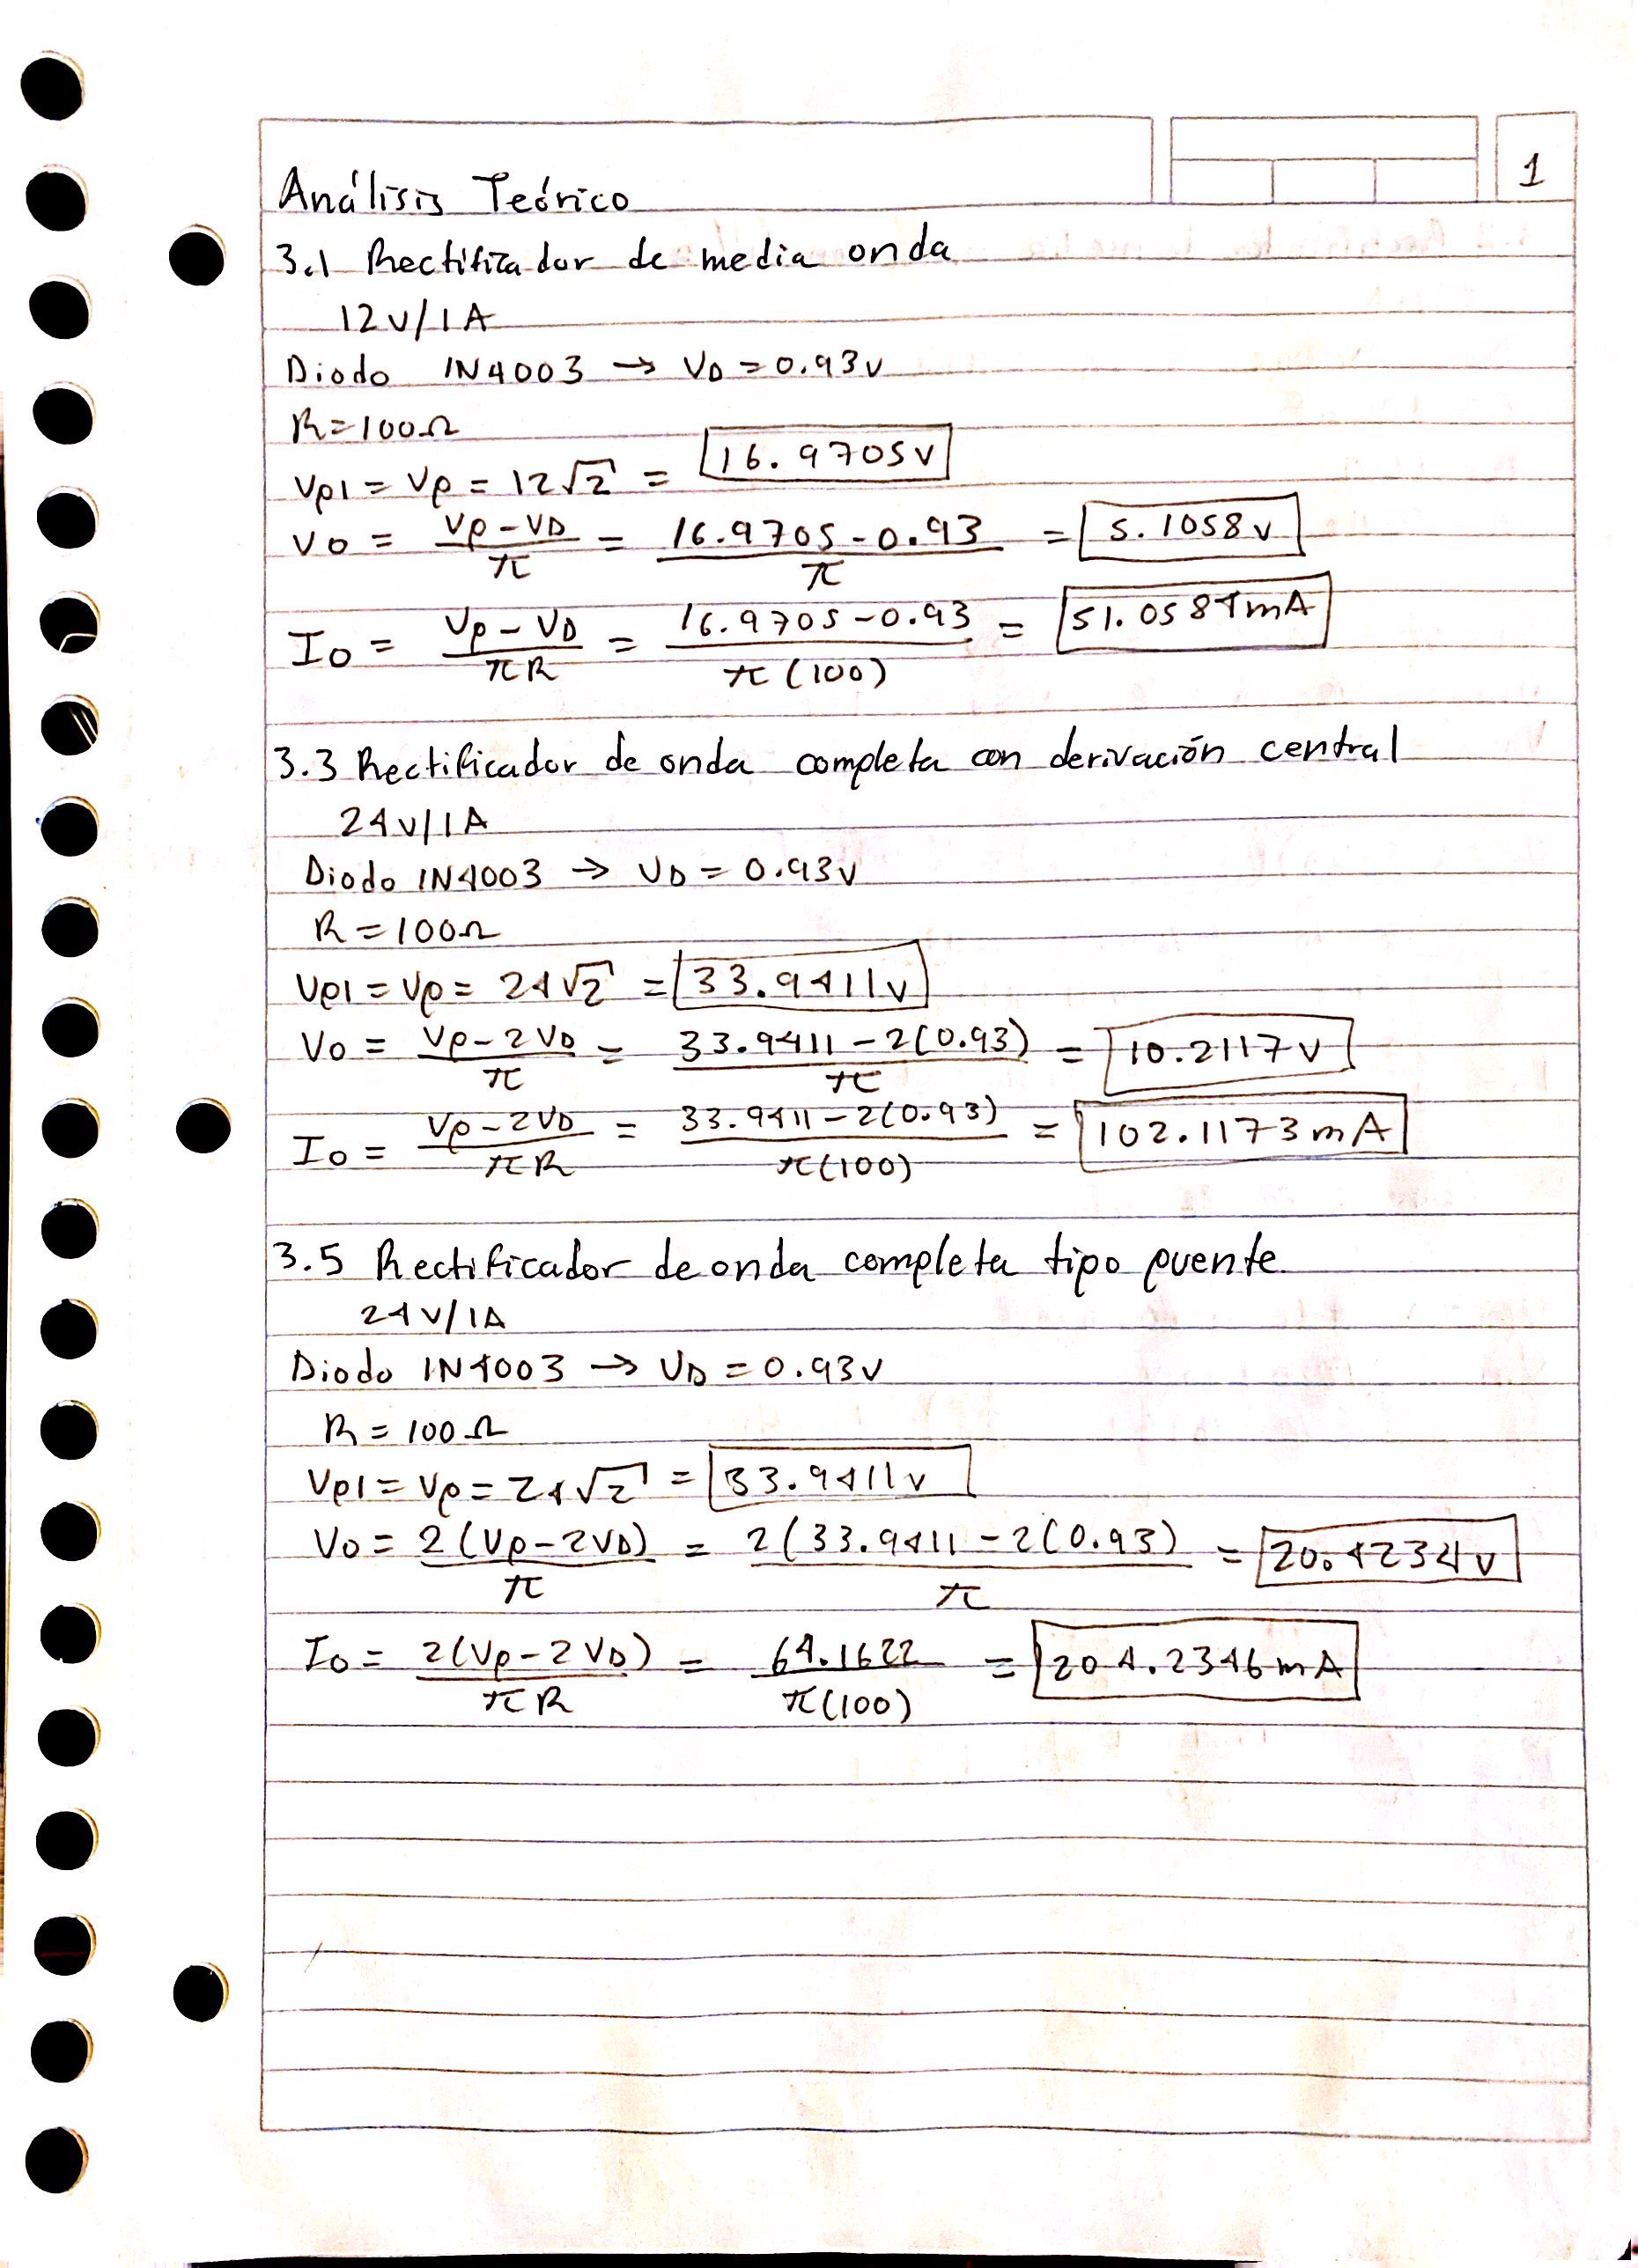 1
Análisis Teórico
3.1 Rectificador de media onda
12v/1A
Diodo 1N4003 → VD = 0.93v
R=100Ω
Vp1 = Vp = 12√2 = 16.9705v
Vo = (Vp-VD)/π = (16.9705-0.93)/π = 5.1058v
Io = (Vp-VD)/(πR) = (16.9705-0.93)/(π(100)) = 51.0584mA
3.3 Rectificador de onda completa con derivación central
24v/1A
Diodo 1N4003 → VD = 0.93v
R=100Ω
Vp1 = Vp = 24√2 = 33.9411v
Vo = (Vp-2VD)/π = (33.9411-2(0.93))/π = 10.2117v
Io = (Vp-2VD)/(πR) = (33.9411-2(0.93))/(π(100)) = 102.1173mA
3.5 Rectificador de onda completa tipo puente
24v/1A
Diodo 1N4003 → VD = 0.93v
R=100Ω
Vp1 = Vp = 24√2 = 33.9411v
Vo = 2(Vp-2VD)/π = 2(33.9411-2(0.93)/π = 20.4234v
Io = 2(Vp-2VD)/(πR) = 64.1622/(π(100)) = 204.2346mA